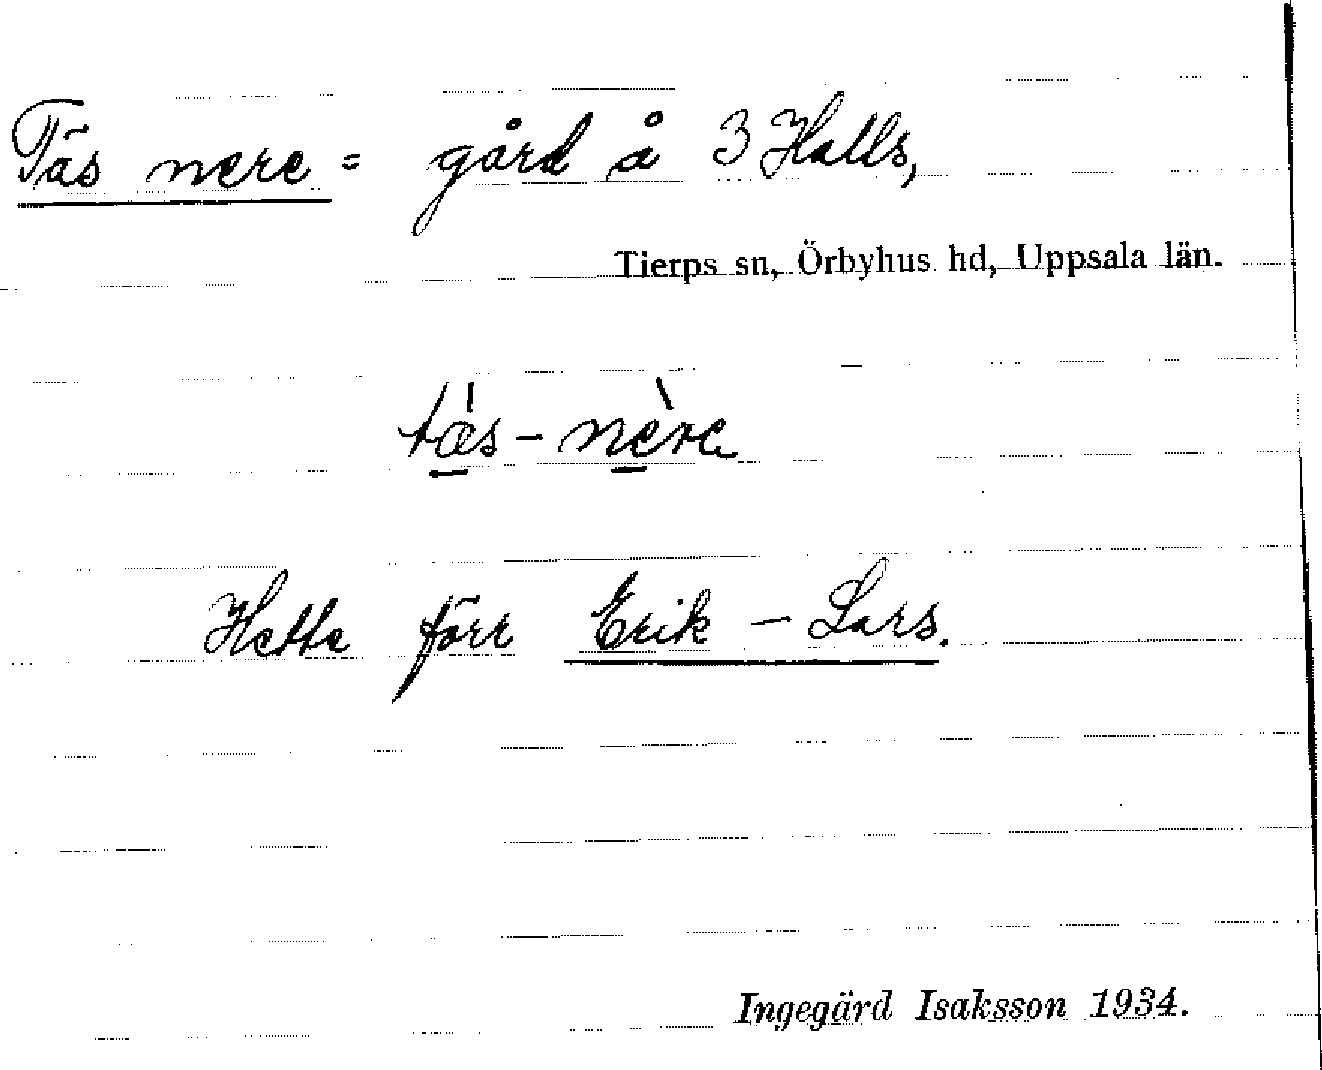 Täs nere = gård å 3 Halls,
Tierps sn, Örbyhus hd, Uppsala län.
tǽ̱s - nè̱re
Hette förr Erik - Lars.
Ingegärd Isaksson 1934.